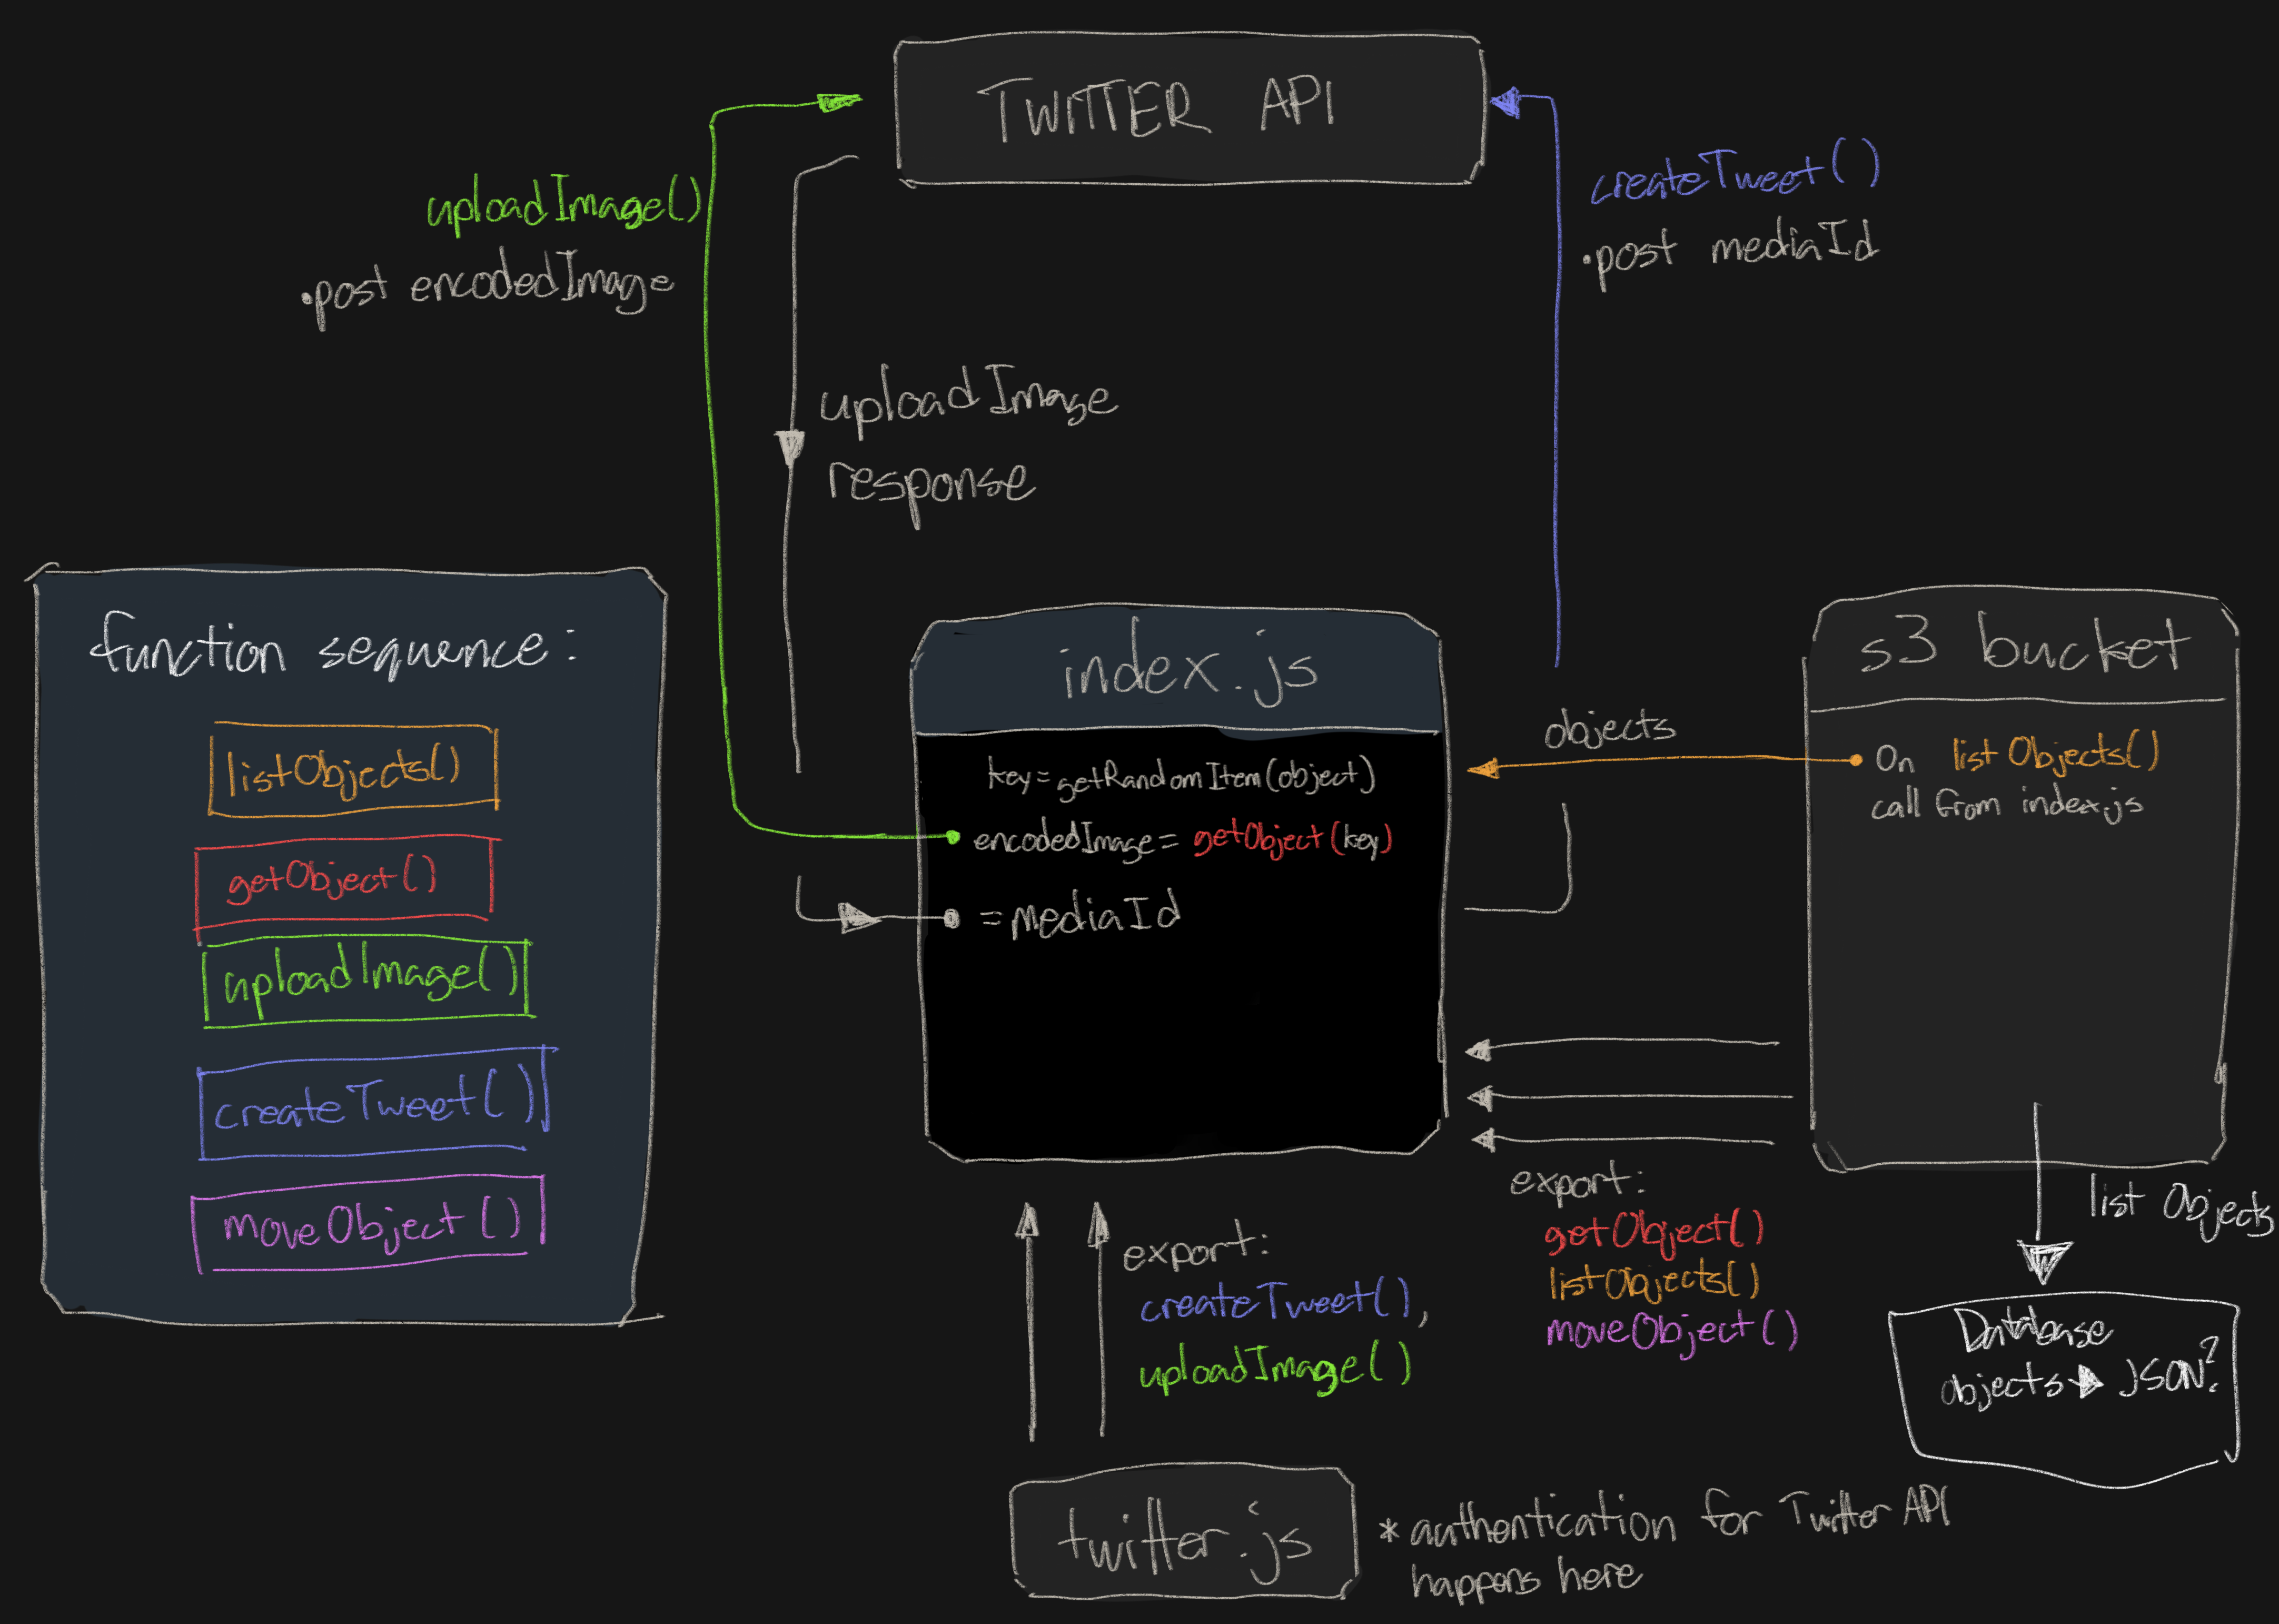 TWITTER API
uploadImage()
•post encodedImage
createTweet()
•post mediaId
uploadImage
response
function sequence:
listObjects()
getObject()
uploadImage()
createTweet()
moveObject()
index.js
key=getRandomItem(object)
encodedImage= getObject(key)
=mediaId
objects
s3 bucket
On listObjects()
call from index.js
export:
createTweet(),
uploadImage()
export:
getObject()
listObjects()
moveObject()
list Objects
Database
objects→JSON?
twitter.js
* authentication for Twitter API
happens here